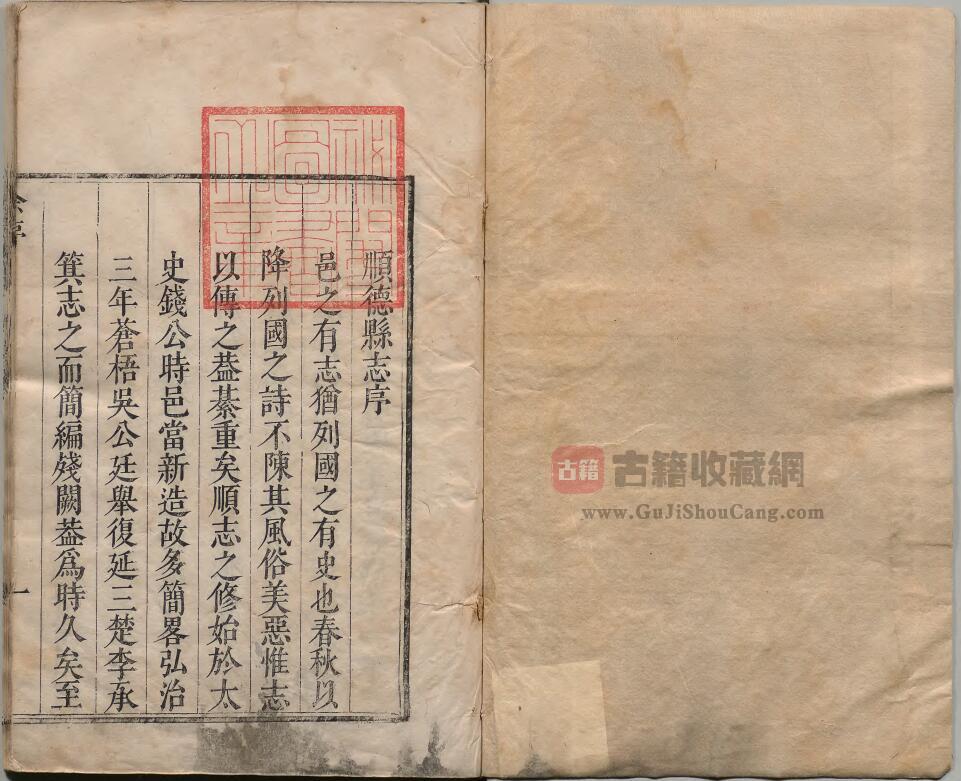 順德縣志序
邑之有志猶列國之有史也春秋以
降列國之詩不陳其風俗美惡惟志
以傳之葢綦重矣順志之修始於太
史錢公時邑當新造故多簡畧弘治
三年蒼梧吳公廷舉復延三楚李承
箕志之而簡編殘闕葢爲時久矣至
序
一
古籍
古籍收藏網
www.GuJiShouCang.com